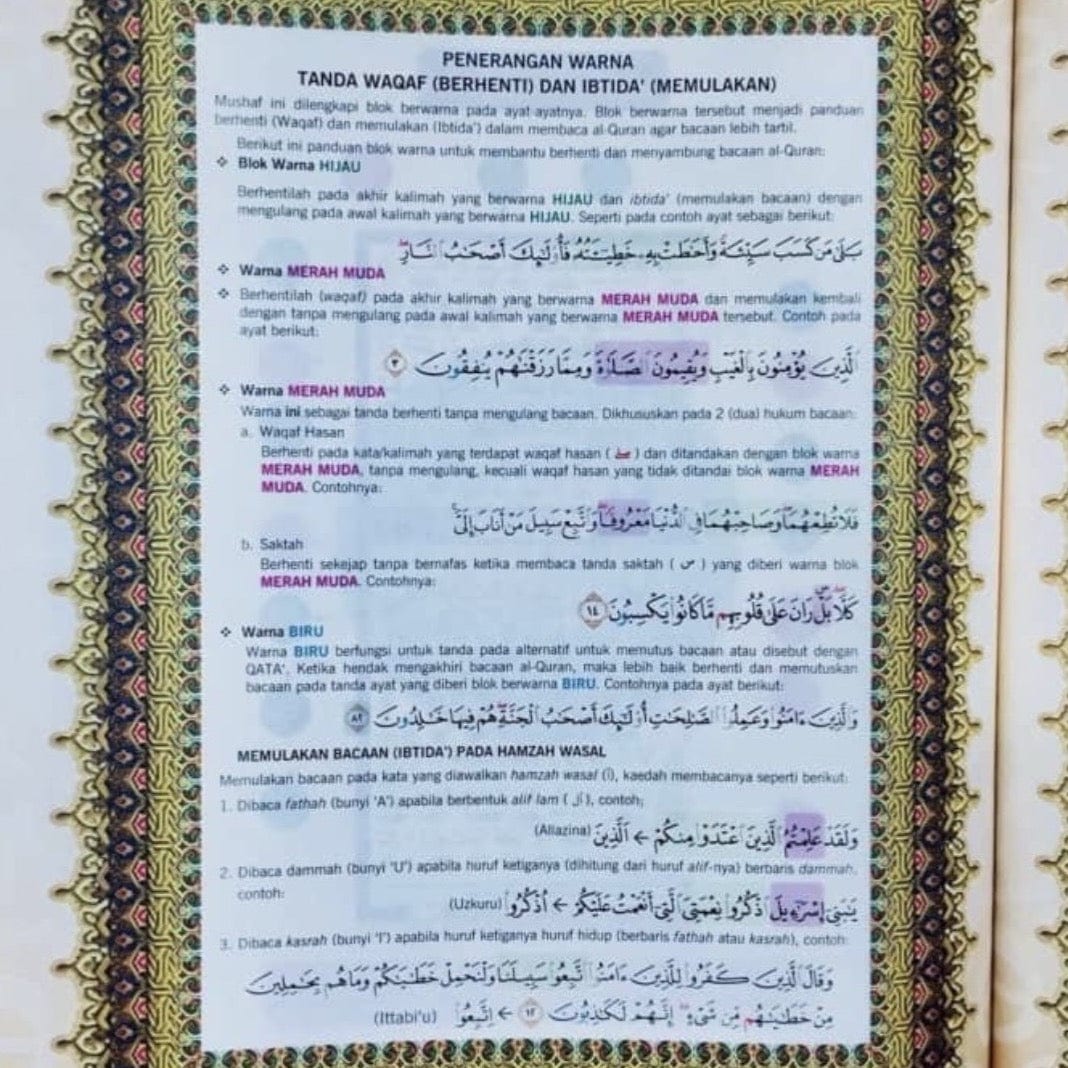 PENERANGAN WARNA
TANDA WAQAF (BERHENTI) DAN IBTIDA' (MEMULAKAN)
Mushaf ini dilengkapi blok berwarna pada ayat-ayatnya. Blok berwarna tersebut menjadi panduan
berhenti (Waqaf) dan memulakan (Ibtida') dalam membaca al-Quran agar bacaan lebih tartil.
Berikut ini panduan blok warna untuk membantu berhenti dan menyambung bacaan al-Quran:
❖ Blok Warna HIJAU
Berhentilah pada akhir kalimah yang berwarna HIJAU dan ibtida' (memulakan bacaan) dengan
mengulang pada awal kalimah yang berwarna HIJAU. Seperti pada contoh ayat sebagai berikut:
بَلَىٰ مَن كَسَبَ سَيِّئَةً وَأَحَٰطَتْ بِهِۦ خَطِيٓـَٔتُهُۥ فَأُو۟لَٰٓئِكَ أَصْحَٰبُ ٱلنَّارِ ۖ
❖ Warna MERAH MUDA
❖ Berhentilah (waqaf) pada akhir kalimah yang berwarna MERAH MUDA dan memulakan kembali
dengan tanpa mengulang pada awal kalimah yang berwarna MERAH MUDA tersebut. Contoh pada
ayat berikut:
ٱلَّذِينَ يُؤْمِنُونَ بِٱلْغَيْبِ وَيُقِيمُونَ ٱلصَّلَوٰةَ وَمِمَّا رَزَقْنَٰهُمْ يُنفِقُونَ ٣
❖ Warna MERAH MUDA
Warna ini sebagai tanda berhenti tanpa mengulang bacaan. Dikhususkan pada 2 (dua) hukum bacaan:
a. Waqaf Hasan
Berhenti pada kata/kalimah yang terdapat waqaf hasan ( صلے ) dan ditandakan dengan blok warna
MERAH MUDA, tanpa mengulang, kecuali waqaf hasan yang tidak ditandai blok warna MERAH
MUDA. Contohnya:
فَلَا تُطِعْهُمَا ۖ وَصَاحِبْهُمَا فِى ٱلدُّنْيَا مَعْرُوفًا ۖ وَٱتَّبِعْ سَبِيلَ مَنْ أَنَابَ إِلَىَّ ۚ
b. Saktah
Berhenti sekejap tanpa bernafas ketika membaca tanda saktah ( س ) yang diberi warna blok
MERAH MUDA. Contohnya:
كَلَّا ۖ بَلْ ۜ رَانَ عَلَىٰ قُلُوبِهِم مَّا كَانُوا۟ يَكْسِبُونَ ١٤
❖ Warna BIRU
Warna BIRU berfungsi untuk tanda pada alternatif untuk memutus bacaan atau disebut dengan
QATA'. Ketika hendak mengakhiri bacaan al-Quran, maka lebih baik berhenti dan memutuskan
bacaan pada tanda ayat yang diberi blok berwarna BIRU. Contohnya pada ayat berikut:
وَٱلَّذِينَ ءَامَنُوا۟ وَعَمِلُوا۟ ٱلصَّٰلِحَٰتِ أُو۟لَٰٓئِكَ أَصْحَٰبُ ٱلْجَنَّةِ ۖ هُمْ فِيهَا خَٰلِدُونَ ٨٢
MEMULAKAN BACAAN (IBTIDA') PADA HAMZAH WASAL
Memulakan bacaan pada kata yang diawalkan hamzah wasal (ٱ), kaedah membacanya seperti berikut:
1. Dibaca fathah (bunyi 'A') apabila berbentuk alif lam ( ٱل ), contoh;
وَلَقَدْ عَلِمْتُمُ ٱلَّذِينَ ٱعْتَدَوْا۟ مِنكُمْ ← اَلَّذِينَ (Allazina)
2. Dibaca dammah (bunyi 'U') apabila huruf ketiganya (dihitung dari huruf alif-nya) berbaris dammah,
contoh:
يَٰبَنِىٓ إِسْرَٰٓءِيلَ ٱذْكُرُوا۟ نِعْمَتِىَ ٱلَّتِىٓ أَنْعَمْتُ عَلَيْكُمْ ← اُذْكُرُوا۟ (Uzkuru)
3. Dibaca kasrah (bunyi 'I') apabila huruf ketiganya huruf hidup (berbaris fathah atau kasrah), contoh:
وَقَالَ ٱلَّذِينَ كَفَرُوا۟ لِلَّذِينَ ءَامَنُوا۟ ٱتَّبِعُوا۟ سَبِيلَنَا وَلْنَحْمِلْ خَطَٰيَٰكُمْ وَمَا هُم بِحَٰمِلِينَ
مِنْ خَطَٰيَٰهُم مِّن شَىْءٍ ۖ إِنَّهُمْ لَكَٰذِبُونَ ١٢ ← اِتَّبِعُوا۟ (Ittabi'u)